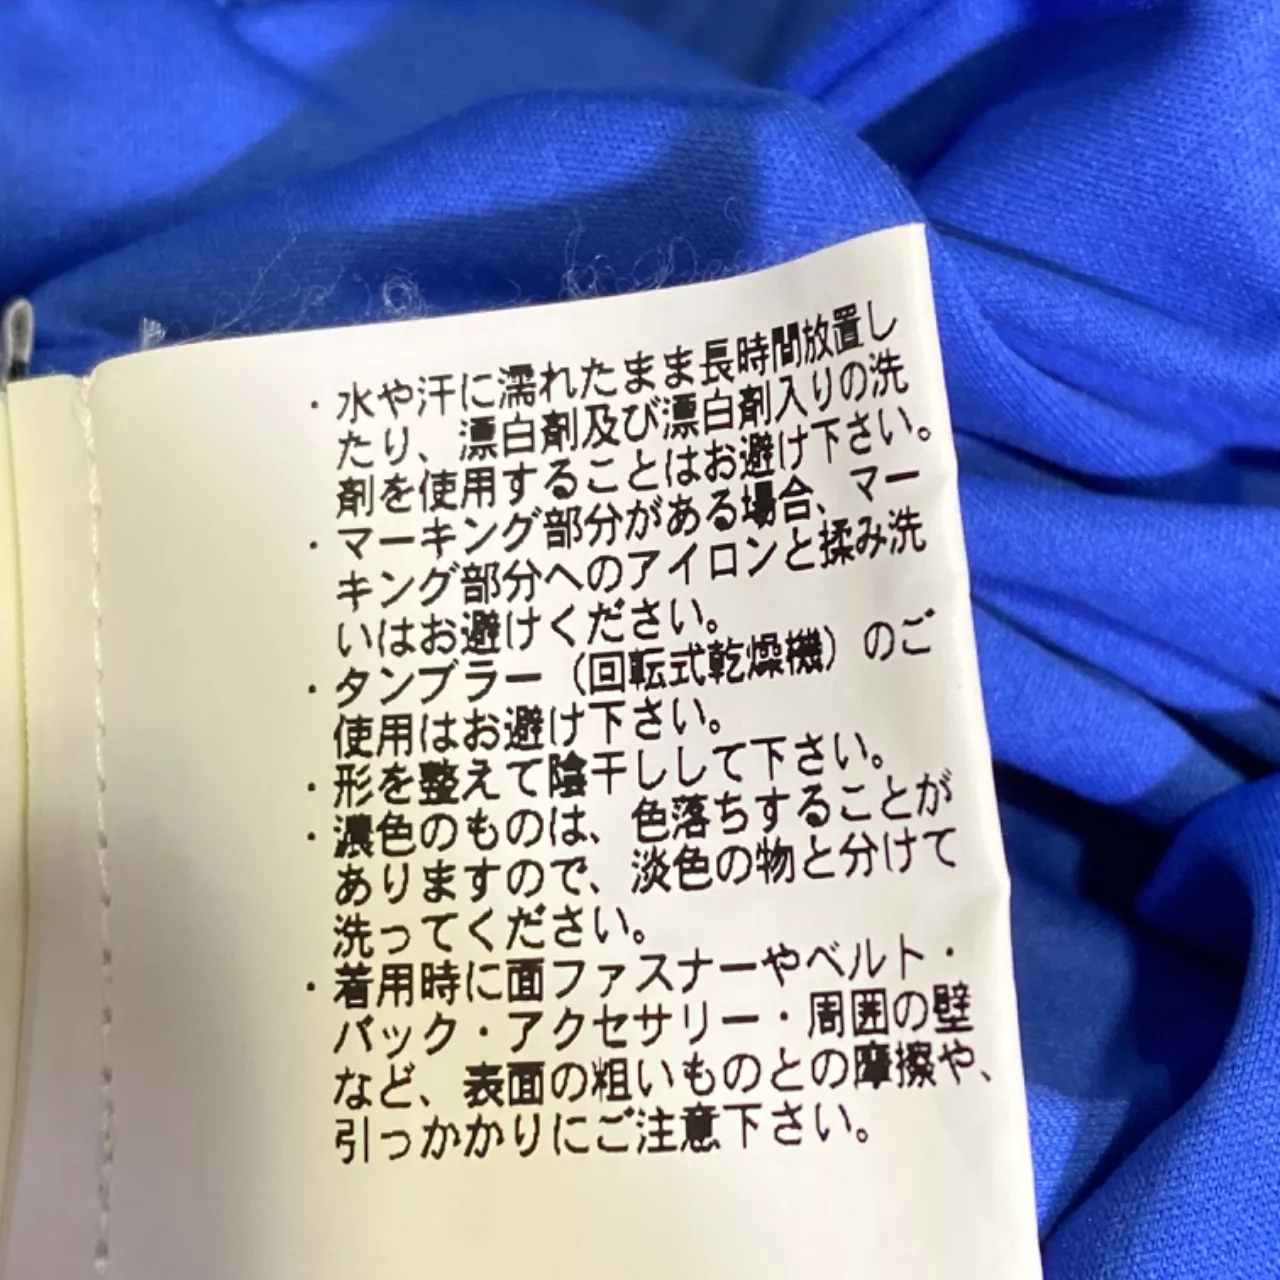 ・水や汗に濡れたまま長時間放置し
たり、漂白剤及び漂白剤入りの洗
剤を使用することはお避け下さい。
・マーキング部分がある場合、マー
キング部分へのアイロンと揉み洗
いはお避けください。
・タンブラー（回転式乾燥機）のご
使用はお避け下さい。
・形を整えて陰干しして下さい。
・濃色のものは、色落ちすることが
ありますので、淡色の物と分けて
洗ってください。
・着用時に面ファスナーやベルト・
バック・アクセサリー・周囲の壁
など、表面の粗いものとの摩擦や、
引っかかりにご注意下さい。